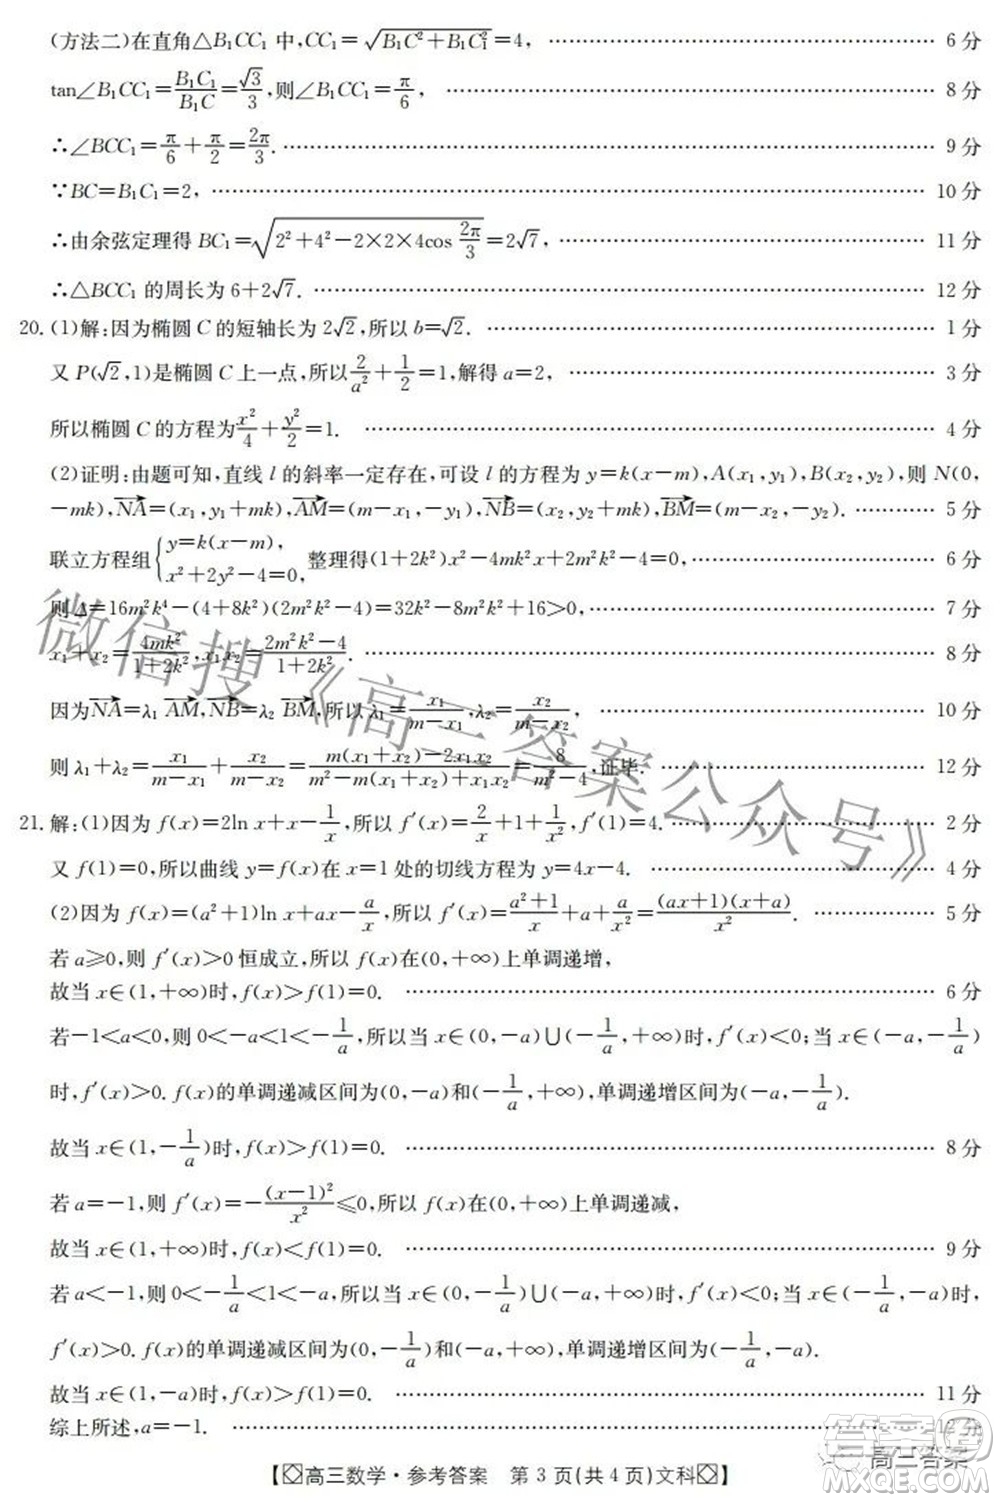 (方法二)在直角△B₁CC₁ 中,CC₁=√(B₁C²+B₁C₁²)=4, …… 6 分
tan∠B₁CC₁=B₁C₁/B₁C=√3/3,则∠B₁CC₁=π/6, …… 8 分
∴∠BCC₁=π/6+π/2=2π/3. …… 9 分
∵BC=B₁C₁=2, …… 10 分
∴由余弦定理得 BC₁=√(2²+4²-2×2×4cos 2π/3)=2√7, …… 11 分
∴△BCC₁ 的周长为 6+2√7. …… 12 分
20. (1)解:因为椭圆 C 的短轴长为 2√2,所以 b=√2. …… 1 分
又 P(√2,1)是椭圆 C 上一点,所以2/a²+1/2=1,解得 a=2, …… 3 分
所以椭圆 C 的方程为x²/4+y²/2=1. …… 4 分
(2)证明:由题可知,直线 l 的斜率一定存在,可设 l 的方程为 y=k(x-m),A(x₁,y₁),B(x₂,y₂),则 N(0,
-mk),NA→=(x₁,y₁+mk),AM→=(m-x₁,-y₁),NB→=(x₂,y₂+mk),BM→=(m-x₂,-y₂). …… 5 分
联立方程组{y=k(x-m), x²+2y²-4=0, 整理得(1+2k²)x²-4mk²x+2m²k²-4=0, …… 6 分
则 Δ=16m²k⁴-(4+8k²)(2m²k²-4)=32k²-8m²k²+16>0, …… 7 分
x₁+x₂=4mk²/(1+2k²),x₁x₂=(2m²k²-4)/(1+2k²). …… 8 分
因为NA→=λ₁ AM→,NB→=λ₂ BM→,所以 λ₁=x₁/(m-x₁),λ₂=x₂/(m-x₂), …… 10 分
则 λ₁+λ₂=x₁/(m-x₁)+x₂/(m-x₂)=(m(x₁+x₂)-2x₁x₂)/(m²-m(x₁+x₂)+x₁x₂)=8/(m²-4),证毕. …… 12 分
21. 解:(1)因为 f(x)=2ln x+x-1/x,所以 f′(x)=2/x+1+1/x²,f′(1)=4. …… 2 分
又 f(1)=0,所以曲线 y=f(x)在 x=1 处的切线方程为 y=4x-4. …… 4 分
(2)因为 f(x)=(a²+1)ln x+ax-a/x,所以 f′(x)=(a²+1)/x+a+a/x²=(ax+1)(x+a)/x². …… 5 分
若 a≥0,则 f′(x)>0 恒成立,所以 f(x)在(0,+∞)上单调递增,
故当 x∈(1,+∞)时,f(x)>f(1)=0. …… 6 分
若-1<a<0,则 0<-a<1<-1/a,所以当 x∈(0,-a)∪(-1/a,+∞)时,f′(x)<0;当 x∈(-a,-1/a)
时,f′(x)>0. f(x)的单调递减区间为(0,-a)和(-1/a,+∞),单调递增区间为(-a,-1/a).
故当 x∈(1,-1/a)时,f(x)>f(1)=0. …… 8 分
若 a=-1,则 f′(x)=-(x-1)²/x²≤0,所以 f(x)在(0,+∞)上单调递减,
故当 x∈(1,+∞)时,f(x)<f(1)=0. …… 9 分
若 a<-1,则 0<-1/a<1<-a,所以当 x∈(0,-1/a)∪(-a,+∞)时,f′(x)<0;当 x∈(-1/a,-a)时,
f′(x)>0. f(x)的单调递减区间为(0,-1/a)和(-a,+∞),单调递增区间为(-1/a,-a).
故当 x∈(1,-a)时,f(x)>f(1)=0. …… 11 分
综上所述,a=-1. …… 12 分
【◇高三数学·参考答案 第 3 页(共 4 页)文科◇】
微信搜《高三答案公众号》
高三答案